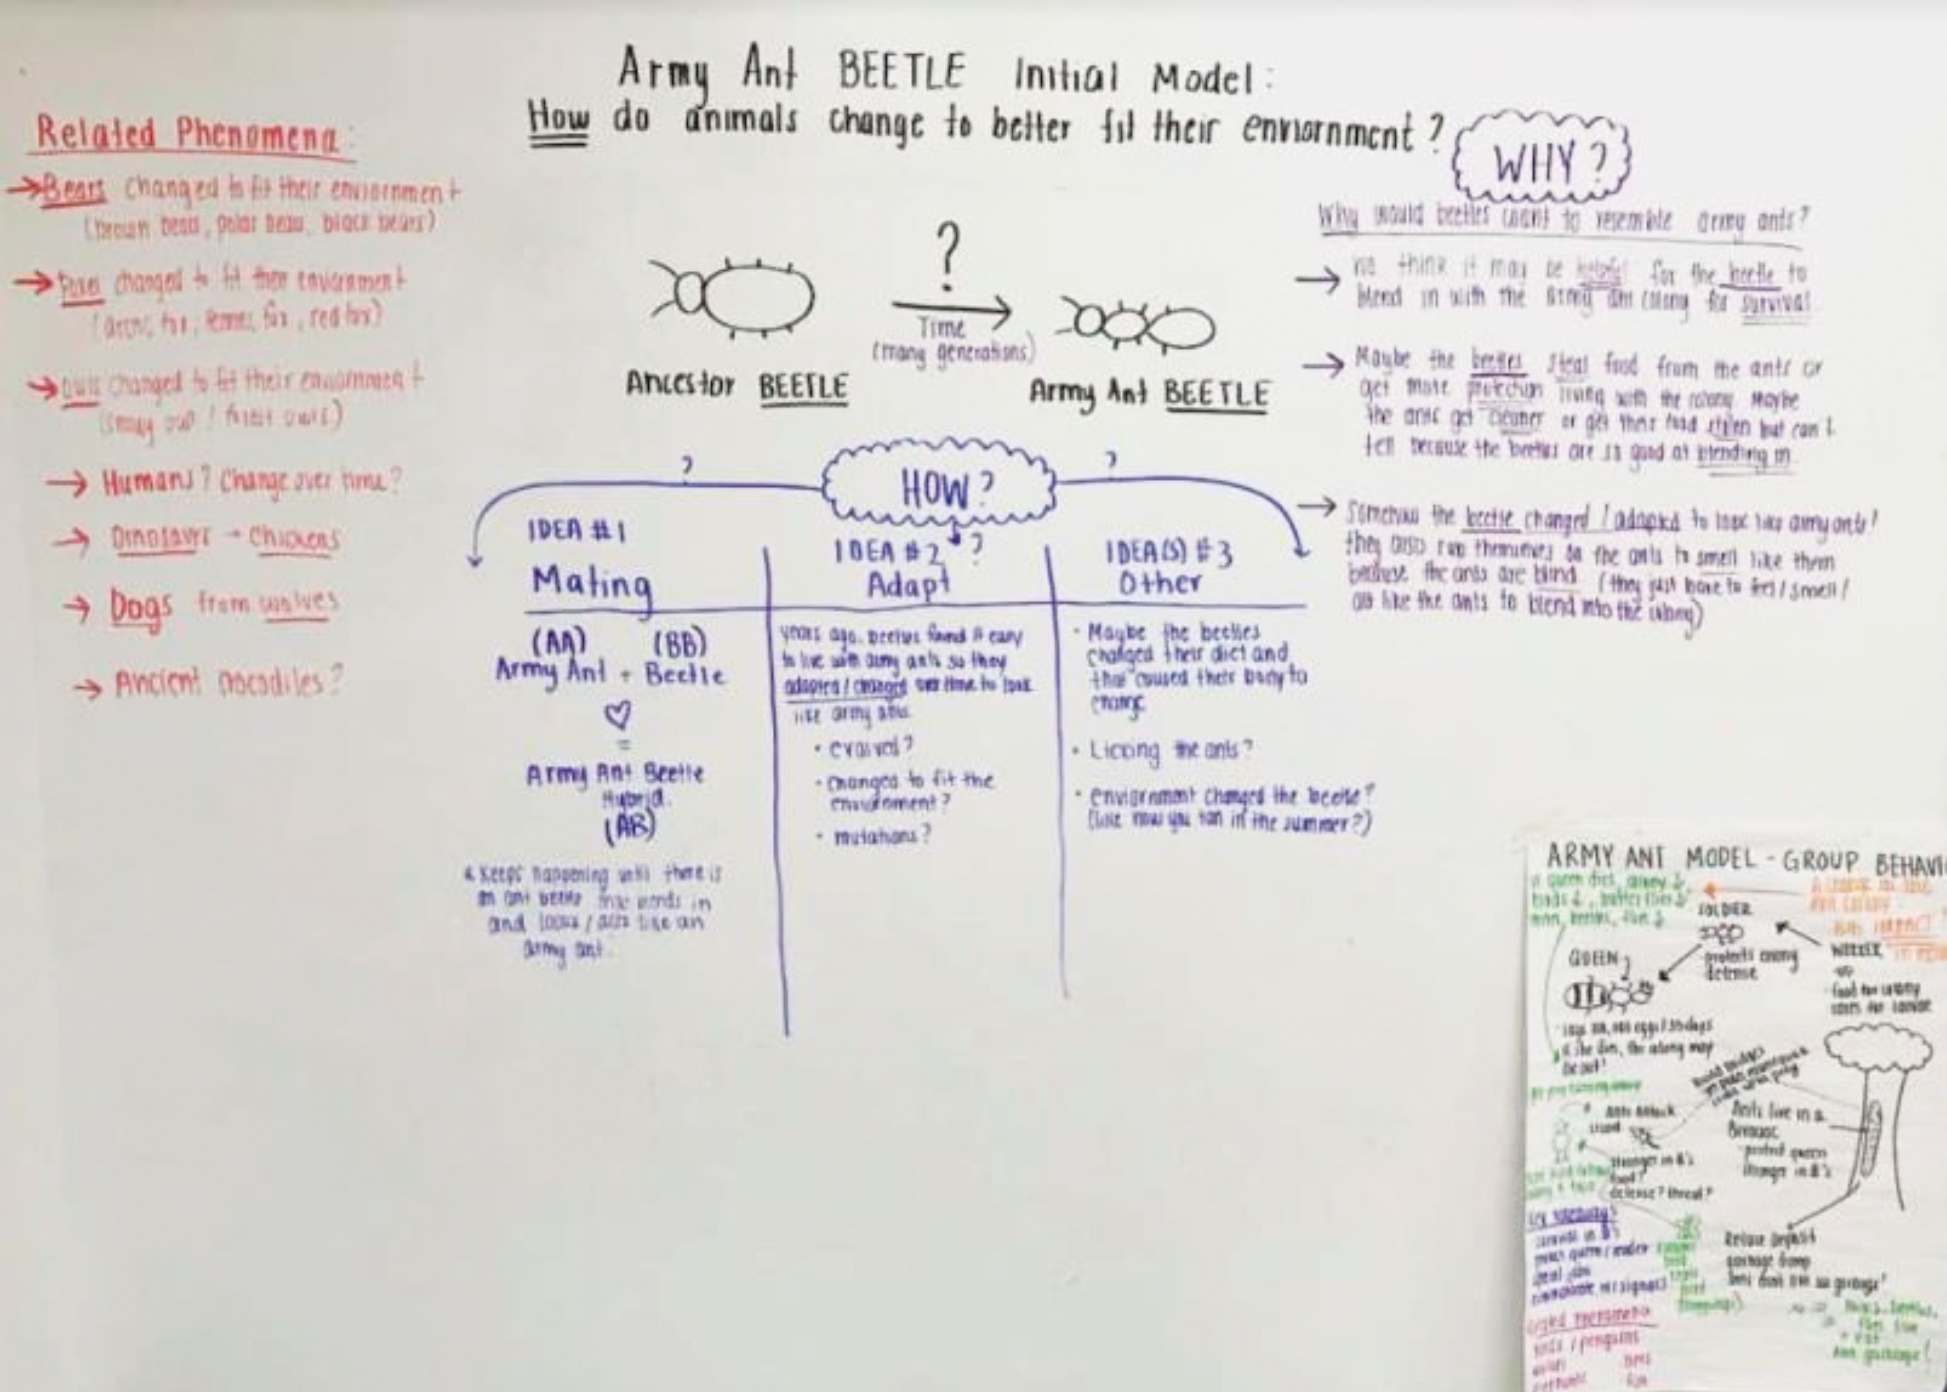 Army Ant BEETLE Initial Model:
How do animals change to better fit their enviornment?
Related Phenomena:
→ Bears changed to fit their enviornment
(brown bear, polar bear, black bears)
→ Foxes changed to fit their enviornment
(arctic fox, fennec fox, red fox)
→ Owls changed to fit their enviornment
(snowy owl / forest owls)
→ Humans? Change over time?
→ Dinosaurs → Chickens
→ Dogs from wolves
→ Ancient crocodiles?
?
Time
(many generations)
Ancestor BEETLE
Army Ant BEETLE
HOW?
?
?
?
IDEA #1
Mating
(AA) (BB)
Army Ant + Beetle
=
Army Ant Beetle
Hybrid
(AB)
keeps happening until there is
an ant beetle that blends in
and looks / acts like an
army ant.
IDEA #2
Adapt
years ago, beetles found it easy
to live with army ants so they
adapted / changed over time to look
like army ants
• evolved?
• changed to fit the
enviornment?
• mutations?
IDEA(S) #3
Other
• Maybe the beetles
changed their diet and
that caused their body to
change
• Licking the ants?
• enviornment changed the beetle?
(like how you tan in the summer?)
WHY?
Why would beetles want to resemble army ants?
→ We think it may be helpful for the beetle to
blend in with the army ant colony for survival
→ Maybe the beetles steal food from the ants or
get more protection living with the colony Maybe
the ants get cleaner or get their food stolen but can't
tell because the beetles are so good at blending in
→ Somehow the beetle changed / adapted to look like army ants!
they also rub themselves on the ants to smell like them
because the ants are blind (they just have to feel / smell /
act like the ants to blend into the colony)
ARMY ANT MODEL - GROUP BEHAVI
SOLDIER
protects colony
defense
QUEEN
WORKER
if she dies, the colony may
be out!
Ants attack
lizard
stronger in #'s
food?
defense? threat?
Ants live in a
Bivouac
protect queen
stronger in #'s
Refuse Deposit
garbage dump